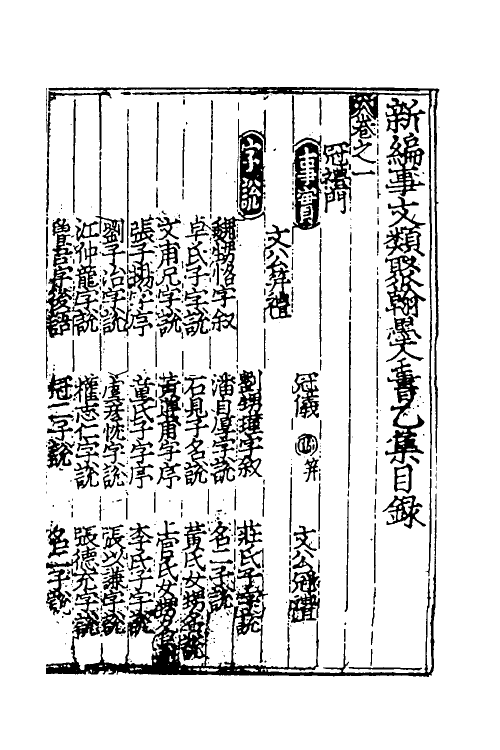 新編事文類聚翰墨大全書乙集目錄
卷之一
冠禮門
事實 冠儀 笄 文公冠禮
文公笄禮
字說 劉甥瑾字叙 莊氏子字説
魏甥恪字叙 潘自厚字説 名二子説
卓氏子字説 石見子名説 黃氏女甥名説
文甫兄字説 黃甫字序 上官氏女甥名
張子甥字序 董氏子字序 李氏子字説
劉子冶字説 盧彥字説 張以謙字説
江仲龍字説 權志仁字説 張德充字説
魯吾字後語 冠二子說 名二子說